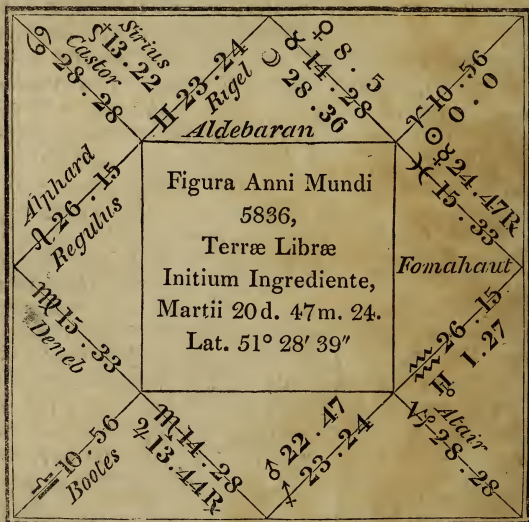 Sirius
♄ 13.22
Castor
♋ 28.28
♊ 23.24
Rigel
Aldebaran
♀ 8.5
♉ 14.28
☽ 28.36
♈ 10.56
☉ 0.0
☿ 24.47℞
♓ 15.33
Alphard
♌ 26.15
Regulus
Figura Anni Mundi
5836,
Terræ Libræ
Initium Ingrediente,
Martii 20d. 47m. 24.
Lat. 51° 28′ 39″
Fomahaut
♍ 15.33
Deneb
♎ 10.56
Bootes
♏ 14.28
♃ 13.44℞
♂ 22.47
♐ 23.24
♒ 26.15
♅ 1.27
Atair
♑ 28.28